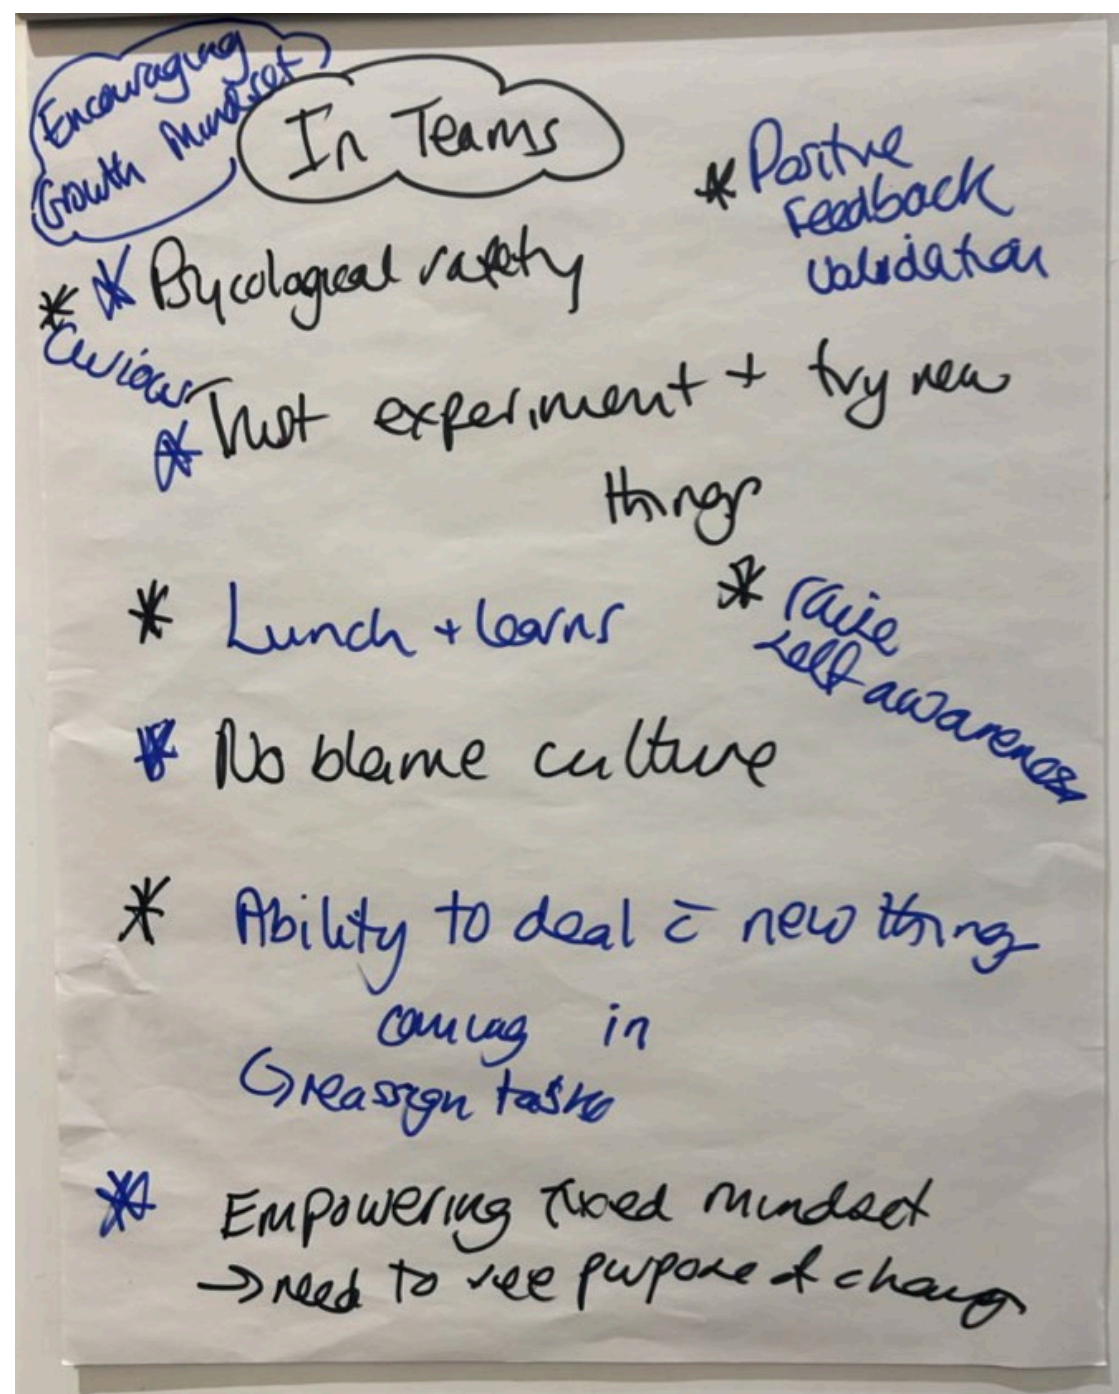 Encouraging
Growth Mindset
In Teams
* Positive
Feedback
validation
* Psycological safety
* Curious
* Trust experiment + try new
things
* Lunch + learns
* raise
self awareness
* No blame culture
* Ability to deal c̄ new things
coming in
↳ reassign tasks
* Empowering fixed mindset
→ need to see purpose of change